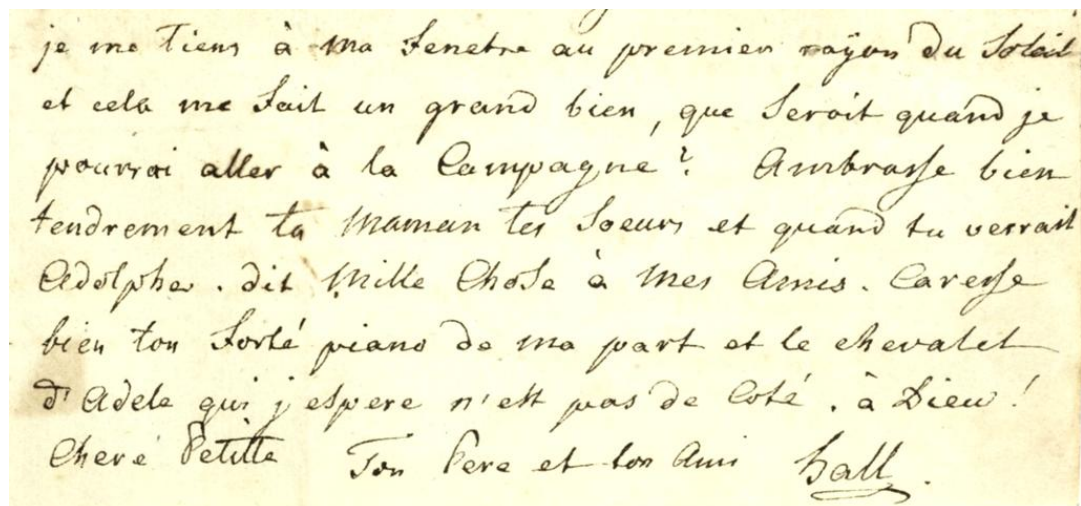 je me tiens à ma fenetre au premier rayon du Soleil
et cela me fait un grand bien, que Seroit quand je
pourroi aller à la Campagne? Ambrasse bien
tendrement ta Maman tes Soeurs et quand tu verrait
Adolphe. dit Mille Chose à Mes Amis. Caresse
bien ton forté piano de ma part et le chevalet
d'Adele qui j'espere n'est pas de Coté. à Dieu!
Cheré Petitte Ton Pere et ton Ami Hall.